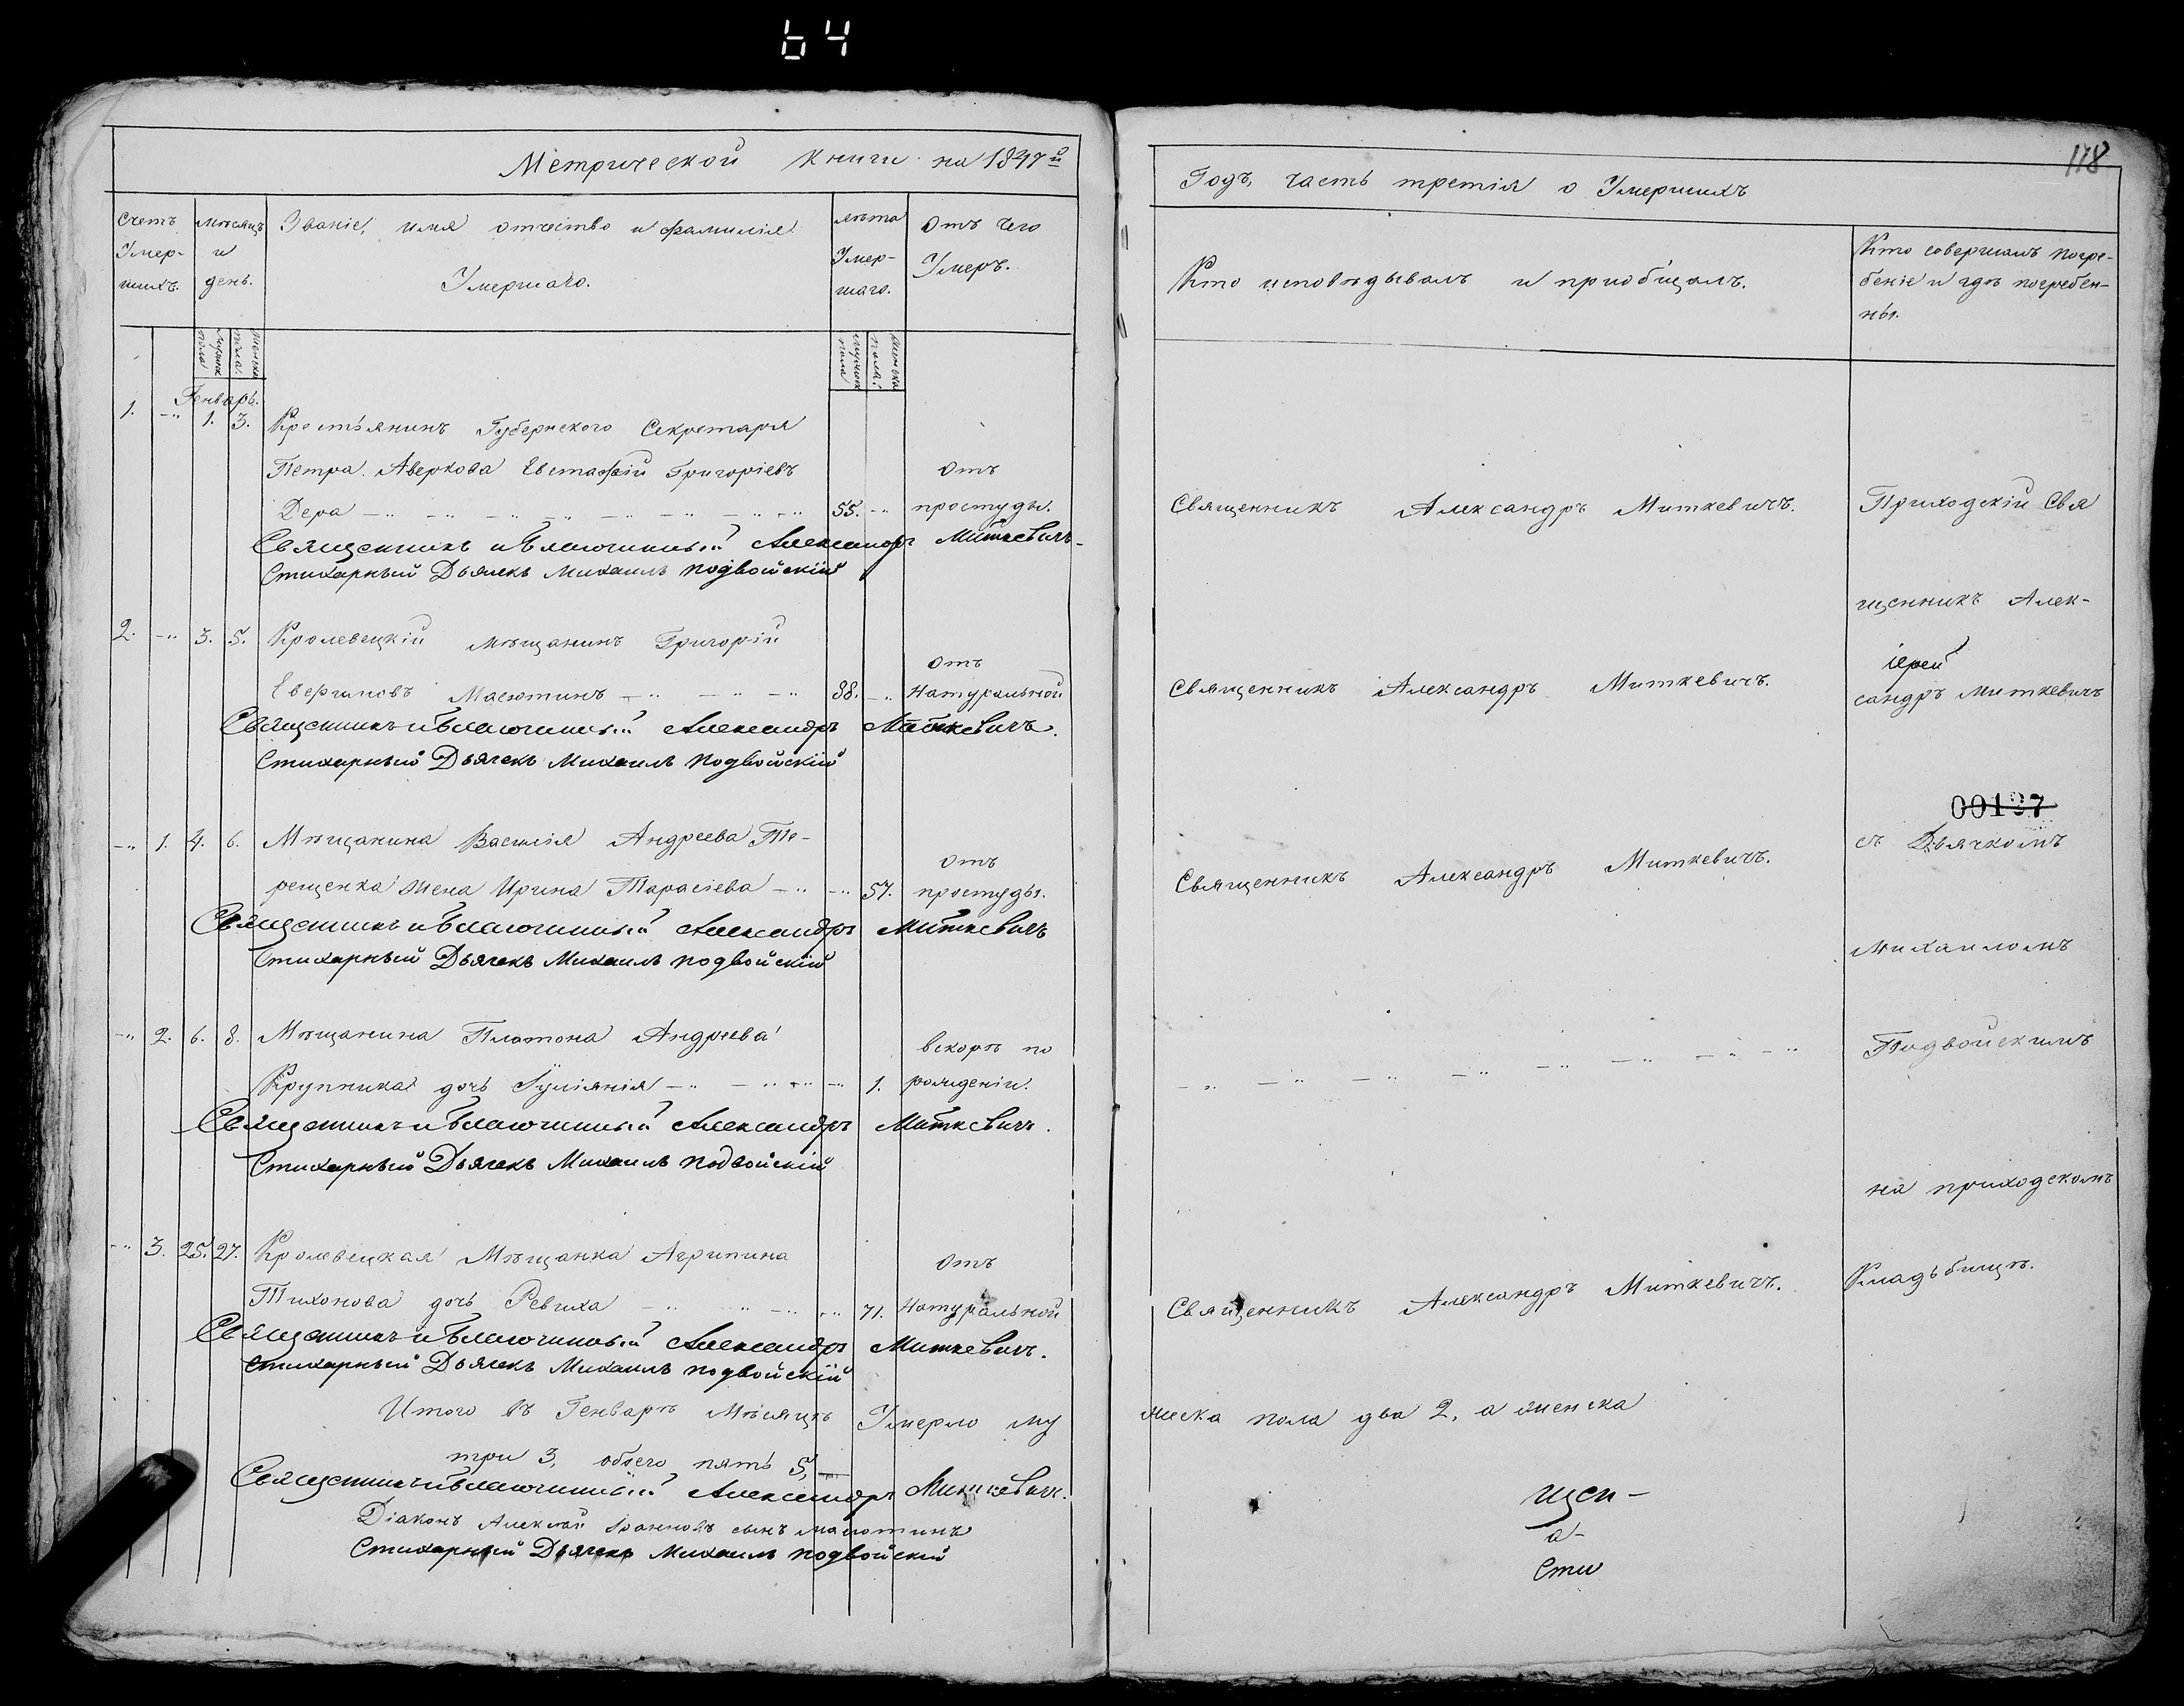 64
Метрической книги на 1847й
счетъ Умер-шихъ.
мѣсяцъ и день.
Званіе, имя отчество и фамилія Умершаго.
лѣта Умер-шаго.
Отъ чего Умеръ.
мужск пола
женска пола.
мужск пола
женска пола.
Генварь.
1. -„ 1. 3. Крестьянинъ Губернского Секретаря
Петра Аверкова Евстафій Григоріевъ Отъ
Дера -„ -„ -„ -„ -„ -„ -„ -„ 55. -„ простуды.
Священникъ и Благочинный Александръ Миткевичъ
Стихарный Дьячекъ Михаилъ Подвойскій
2. -„ 3. 5. Кролевецкій мѣщанинъ Григорій
отъ
Масютинъ -„ -„ -„ 88. -„ Натуральной
Священникъ и Благочинный Александръ Миткевичъ.
Стихарный Дьячекъ Михаилъ Подвойскій
-„ 1. 4. 6. Мѣщанина Василія Андреева Те-
отъ
рещенка жена Ирина Тарасіева -„ -„ 57. простуды.
Священникъ и Благочинный Александръ Миткевичъ
Стихарный Дьячекъ Михаилъ Подвойскій
-„ 2. 6. 8. Мѣщанина Платона Андреева вскорѣ по
Крупника дочь Іуліянія -„ -„ -„ -„ 1. рождении.
Священникъ и Благочинный Александръ Миткевичъ.
Стихарный Дьячекъ Михаилъ Подвойскій
-„ 3. 25. 27. Кролевецкая Мѣщанка Агрипина отъ
Тихонова дочь Ревиха -„ -„ -„ -„ 71. Натуральной
Священникъ и Благочинный Александръ Миткевичъ.
Стихарный Дьячекъ Михаилъ Подвойскій
Итого въ Генварѣ мѣсяцѣ Умерло му
три 3, обоего пять 5,
Священникъ и Благочинный Александръ Миткевичъ.
Діаконъ Алексѣй Іоанновъ сынъ Масютинъ
Стихарный Дьячекъ Михаилъ Подвойскій
118
Годъ, часть третія о Умершихъ
Кто исповѣдывалъ и приобщалъ.
Кто совершалъ погре-
беніе и гдѣ погребен-
ны.
Священникъ Александръ Миткевичъ. Приходскій Свя
щенникъ Алек-
іерей
Священникъ Александръ Миткевичъ. сандръ Миткевичъ
00137
съ Дьячкомъ
Священникъ Александръ Миткевичъ.
Михаиломъ
-„ -„ -„ -„ -„ -„ -„ -„ Подвойскимъ
на приходскомъ
Священникъ Александръ Миткевичъ. Кладьбищѣ.
жеска пола два 2, а женска
щен-
а-
Сти